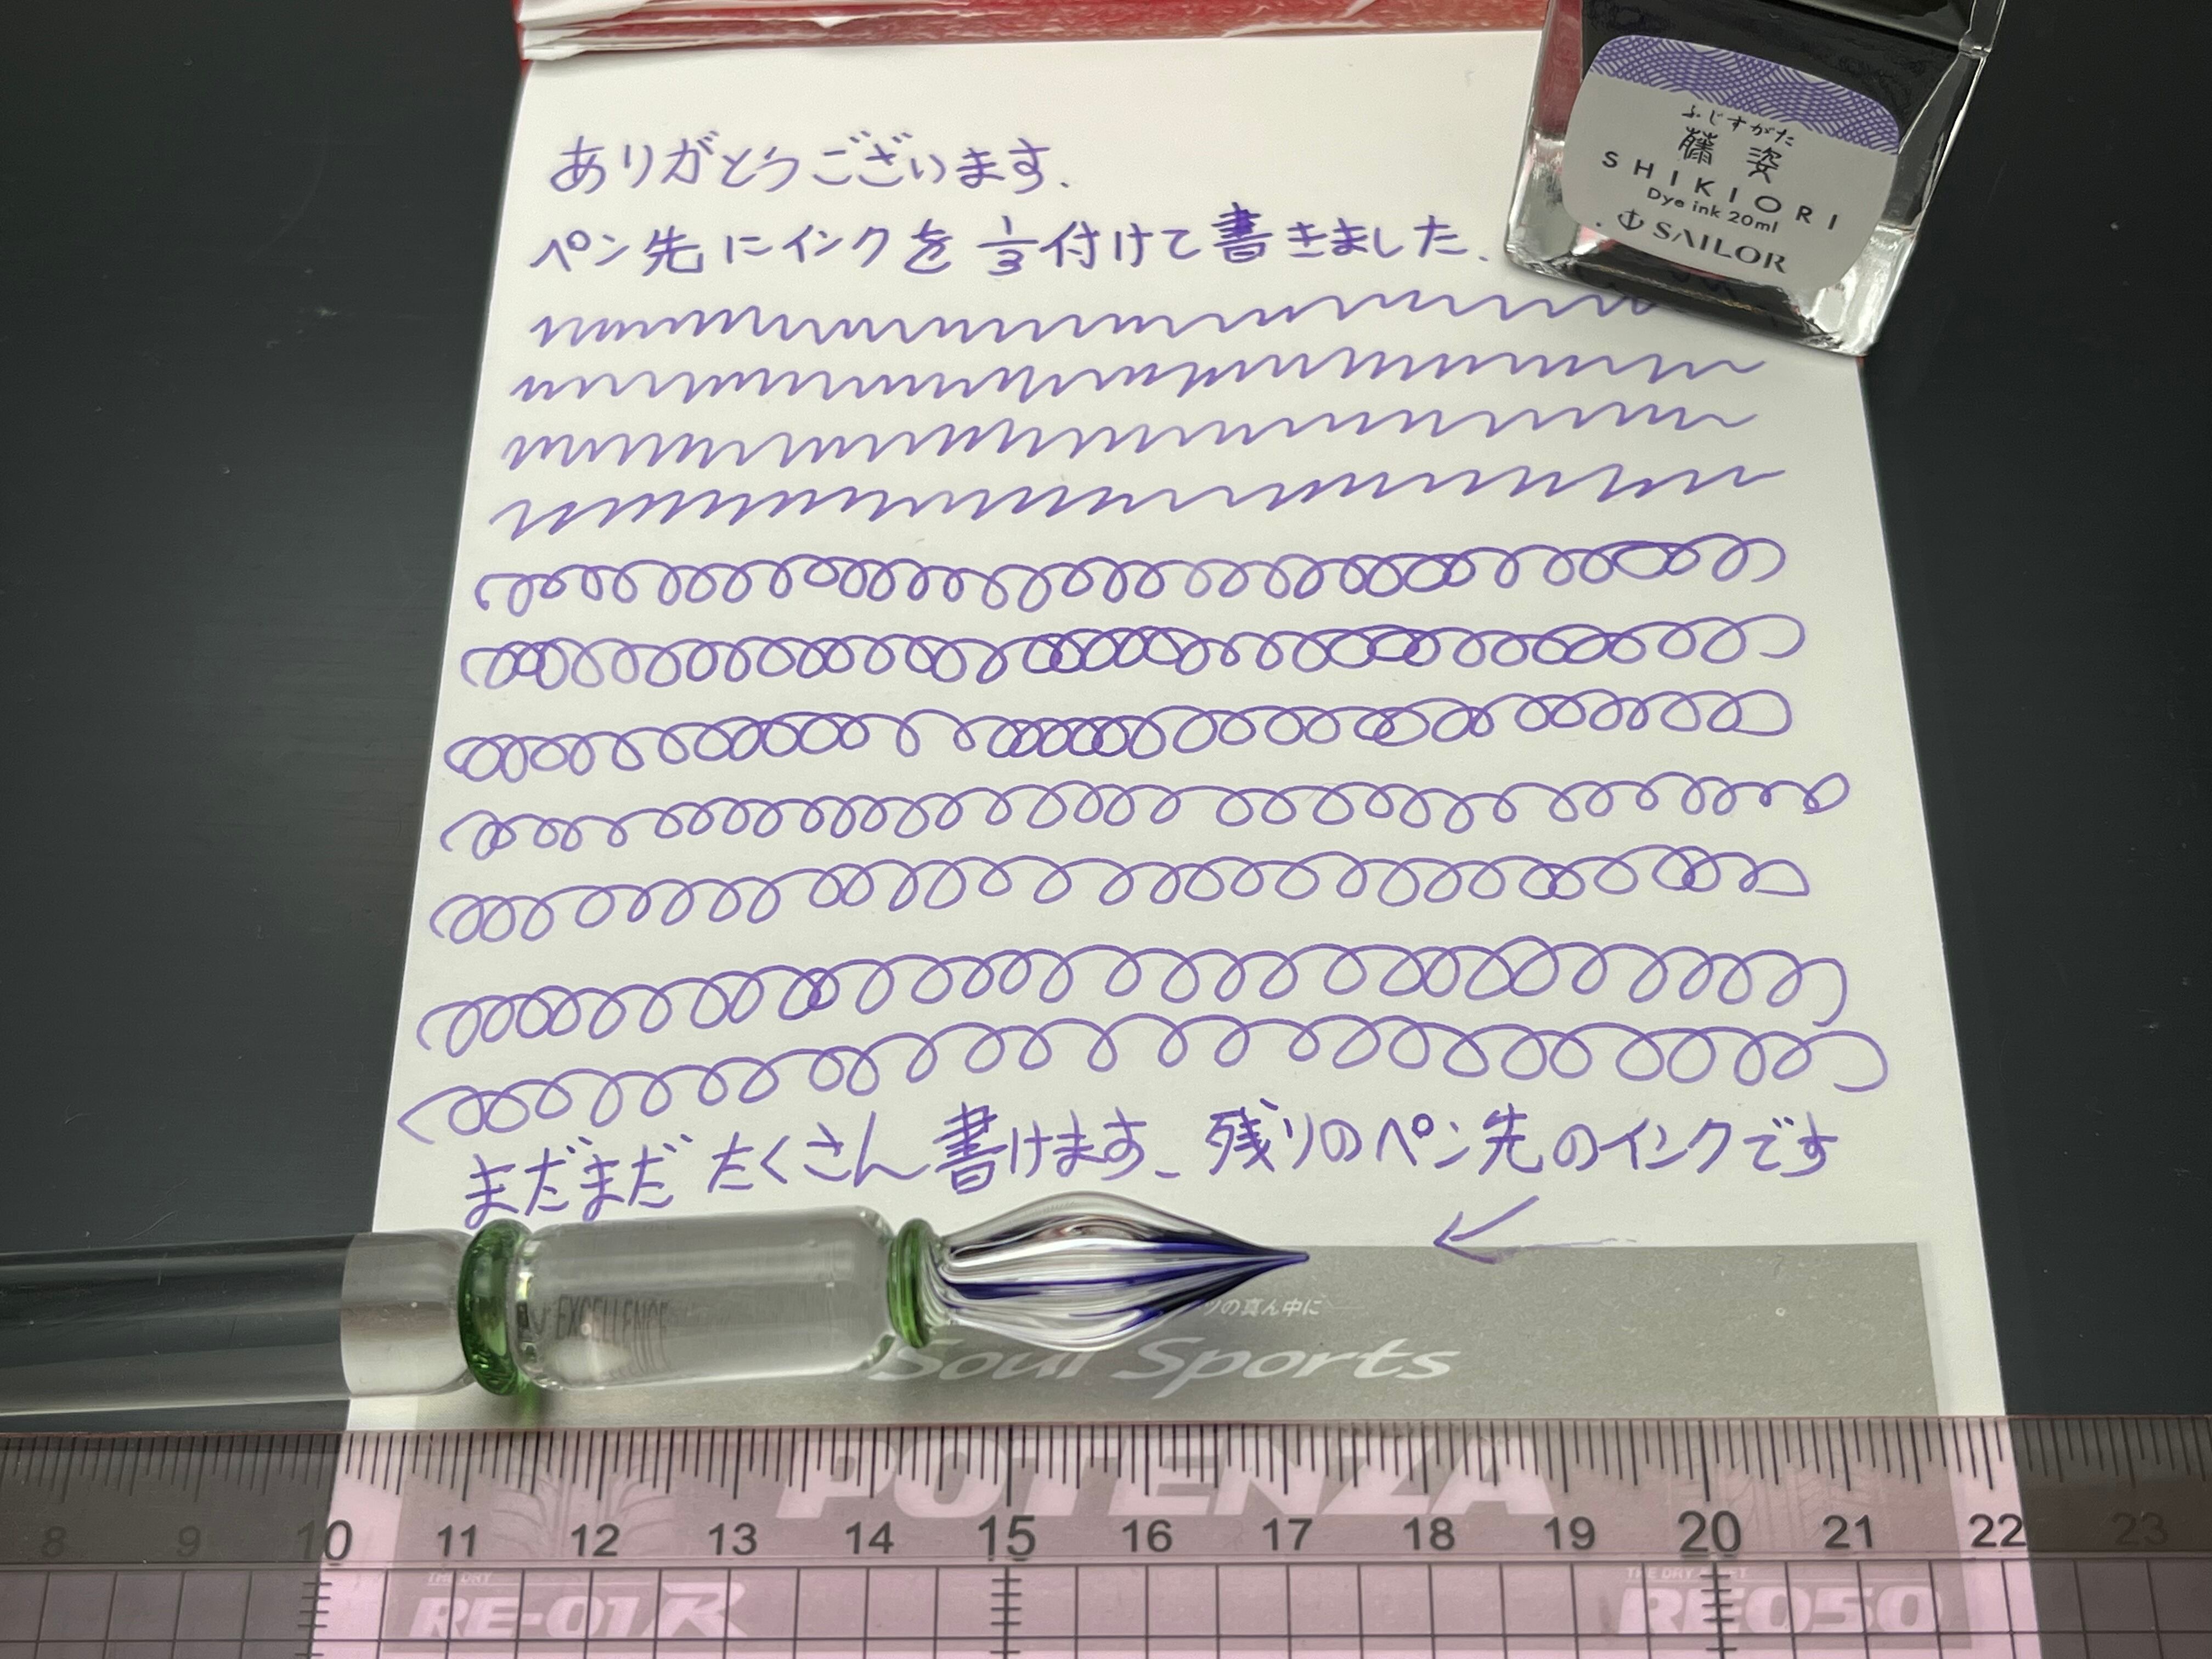 ふじすがた
藤姿
SHIKIORI
Dye ink 20ml
SAILOR
ありがとうございます.
ペン先にインクを 1/3 付けて書きました.
まだまだたくさん書けます. 残りのペン先のインクです
←
EXCELLENCE
りの真ん中に
Soul Sports
POTENZA
8 9 10 11 12 13 14 15 16 17 18 19 20 21 22 23
THE DRY
RE-01R
RE050